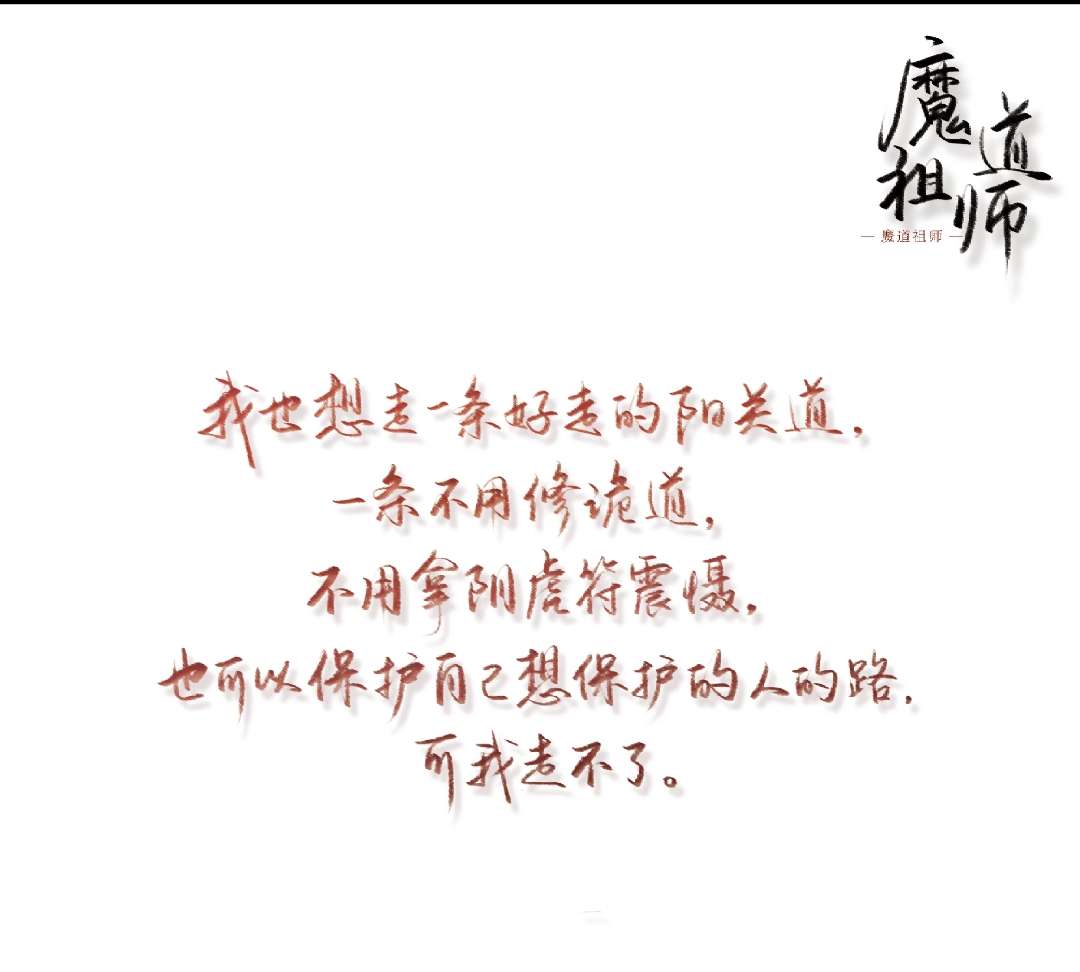 魔道
祖师
— 魔道祖师 —
我也想走一条好走的阳关道,
一条不用修诡道,
不用拿阴虎符震慑,
也可以保护自己想保护的人的路,
可我走不了。